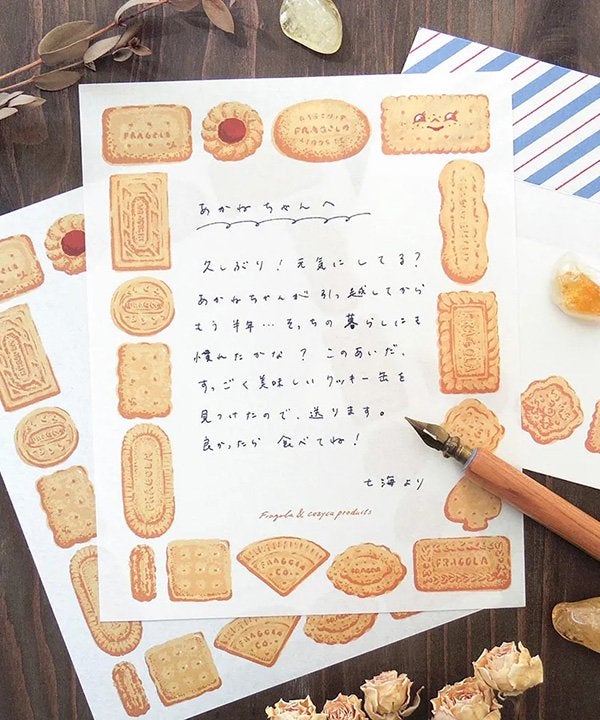 FRAGOLA
BISCUIT
FRAGOLA
あかねちゃんへ
久しぶり！元気にしてる？
あかねちゃんが引っ越してから
もう半年…そっちの暮らしにも
慣れたかな？このあいだ、
すっごく美味しいクッキー缶を
見つけたので、送ります。
良かったら食べてね！
七海より
Fragola & cozyca products
FRAGOLA
FRAGOLA
FRAGOLA
CO.
FRAGOLA
FRAGOLA
CO.